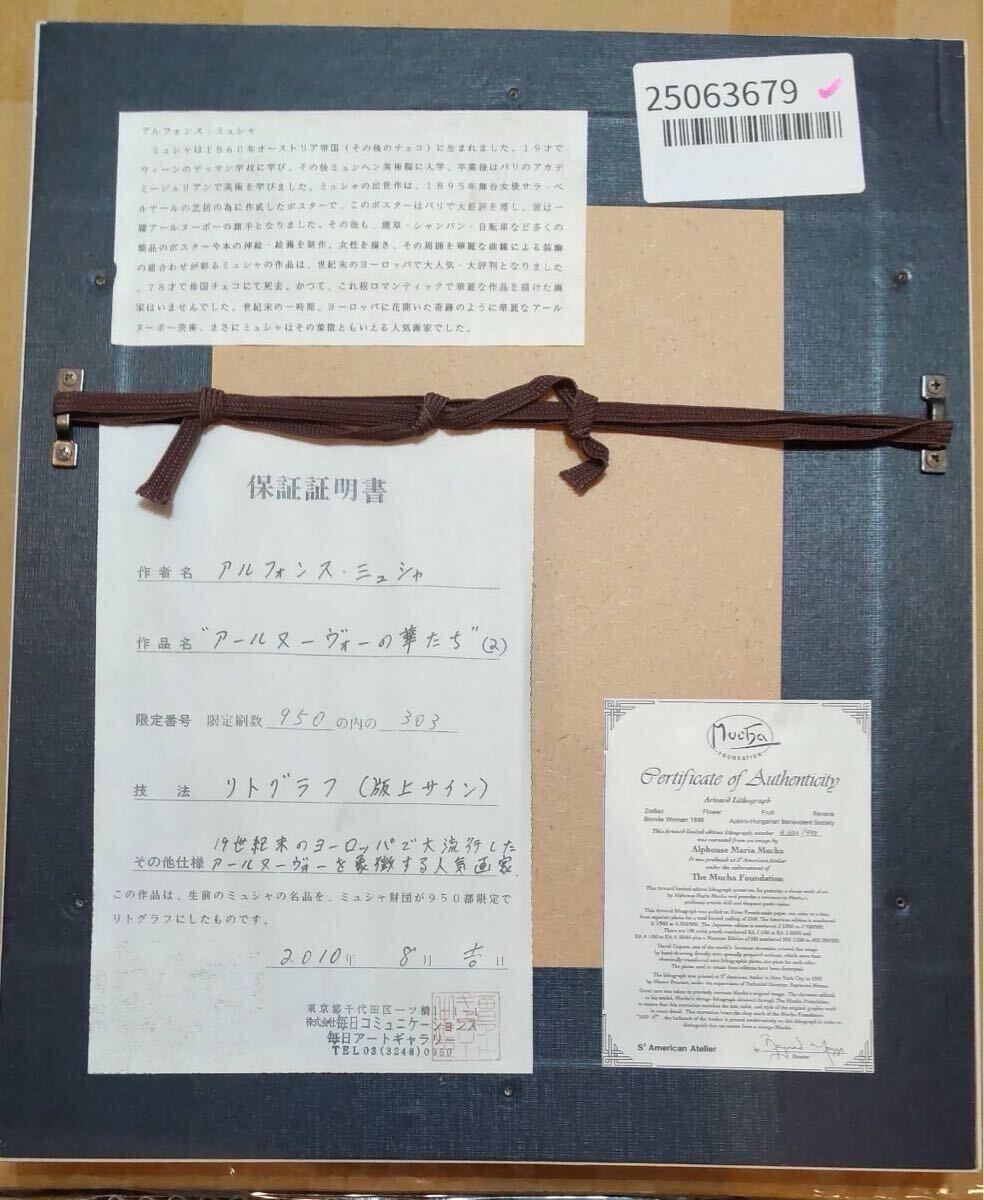 25063679
アルフォンス・ミュシャ
ミュシャは1860年オーストリア帝国(その後のチェコ)に生まれました。19才で
ウィーンのデッサン学校に学び、その後ミュンヘン美術院に入学、卒業後はパリのアカデ
ミージュリアンで美術を学びました。ミュシャの出世作は、1895年舞台女優サラ・ベ
ルナールの芝居の為に作成したポスターで、このポスターはパリで大好評を博し、彼は一
躍アールヌーボーの旗手となりました。その後も、煙草・シャンパン・自転車など多くの
製品のポスターや本の挿絵・絵画を制作。女性を描き、その周囲を華麗な曲線による装飾
の組合わせが彩るミュシャの作品は、世紀末のヨーロッパで大人気・大評判となりました
。78才で母国チェコにて死去。かつて、これ程ロマンティックで華麗な作品を描けた画
家はいませんでした。世紀末の一時期、ヨーロッパに花開いた奇跡のように華麗なアール
ヌーボー芸術、まさにミュシャはその象徴ともいえる人気画家でした。
保証証明書
作者名 アルフォンス・ミュシャ
作品名 "アールヌーヴォーの華たち"(2)
限定番号 限定刷数 950 の内の 303
技 法 リトグラフ(版上サイン)
19世紀末のヨーロッパで大流行した
その他仕様 アールヌーヴォーを象徴する人気画家.
この作品は、生前のミュシャの名品を、ミュシャ財団が950部限定で
リトグラフにしたものです。
2010年 8月 吉日
東京都千代田区一ツ橋1
株式会社毎日コミュニケーションズ
毎日アートギャラリー
TEL03(3248)0950
Mucha
FOUNDATION
Certificate of Authenticity
Artcard Lithograph
Zodiac Flower Fruit Reverie
Blonde Woman 1898 Austro-Hungarian Benevolent Society
This Artcard limited edition lithograph, number
was recreated from an image by
Alphonse Maria Mucha
It was produced at S² American Atelier
under the endorsement of
The Mucha Foundation
This Artcard limited edition lithograph preserves, for posterity, a classic work of art
by Alphonse Maria Mucha and provides a testament to Mucha's
profound artistic skill and eloquent poetic vision.
S² American Atelier
by
Director